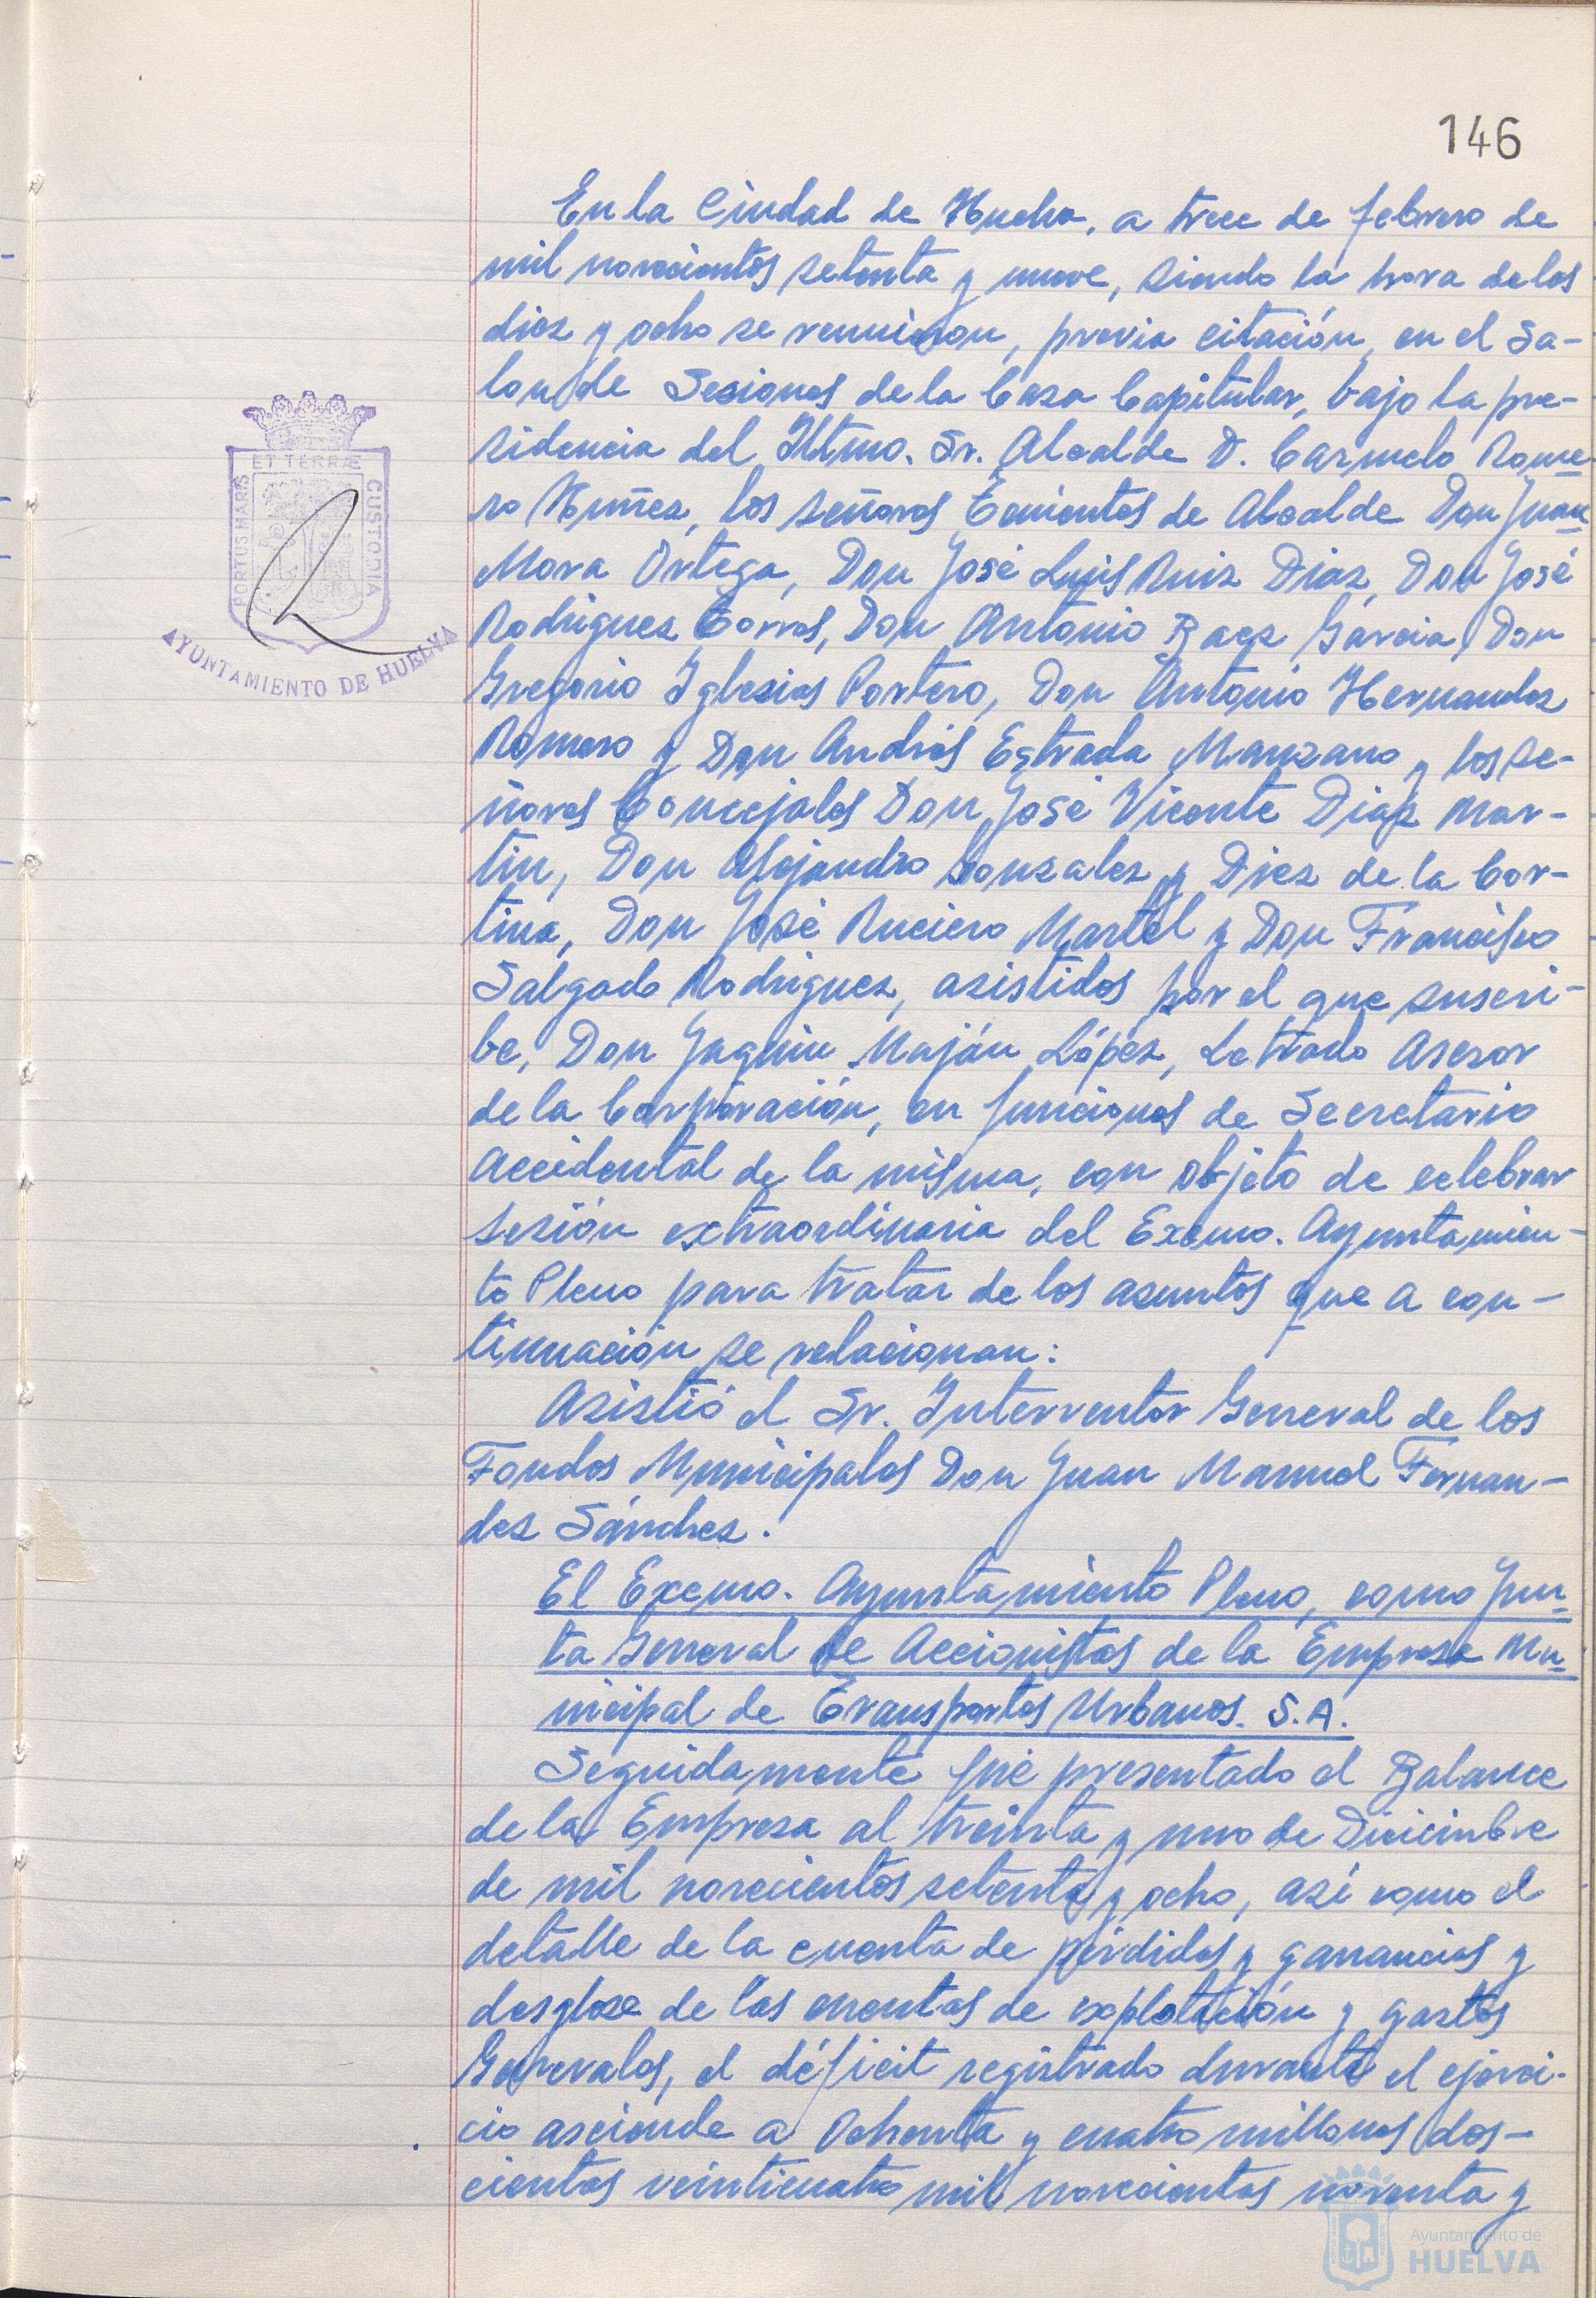 146
En la Ciudad de Huelva, a trece de febrero de
mil novecientos setenta y nueve, siendo la hora de las
diez y ocho se reunieron, previa citación, en el Sa-
lon de Sesiones de la Casa Capitular, bajo la pre-
sidencia del Iltmo. Sr. Alcalde D. Carmelo Rome-
ro Nuñez, los señores Tenientes de Alcalde Don Juan
Mora Ortega, Don José Luis Ruiz Diaz, Don José
Rodriguez Torres, Don Antonio Baez Garcia, Don
Gregorio Iglesias Portero, Don Antonio Hernandez
Romero y Don Andrés Estrada Manzano y los se-
ñores Concejales Don José Vicente Diaz Mar-
tin, Don Alejandro Gonzalez y Diez de la Cor-
tina, Don José Ruciero Martel y Don Francisco
Salgado Rodriguez, asistidos por el que suscri-
be, Don Jaquin Maján López, Letrado Asesor
de la Corporación, en funciones de Secretario
Accidental de la misma, con objeto de celebrar
sesión extraordinaria del Excmo. Ayuntamien-
to Pleno para tratar de los asuntos que a con-
tinuación se relacionan:
Asistió el Sr. Interventor General de los
Fondos Municipales Don Juan Manuel Fernan-
dez Sánchez.
El Excmo. Ayuntamiento Pleno, como Jun-
ta General de Accionistas de la Empresa Mu-
nicipal de Transportes Urbanos. S.A.
Seguidamente fué presentado el Balance
de la Empresa al treinta y uno de Diciembre
de mil novecientos setenta y ocho, así como el
detalle de la cuenta de pérdidas y ganancias y
desglose de las cuentas de explotación y gastos
Generales, el déficit registrado durante el ejerci-
cio asciende a Ochenta y cuatro millones dos-
cientas veinticuatro mil novecientas noventa y
PORTUS MARIS
ET TERRÆ
CUSTODIA
AYUNTAMIENTO DE HUELVA
Ayuntamiento de
HUELVA